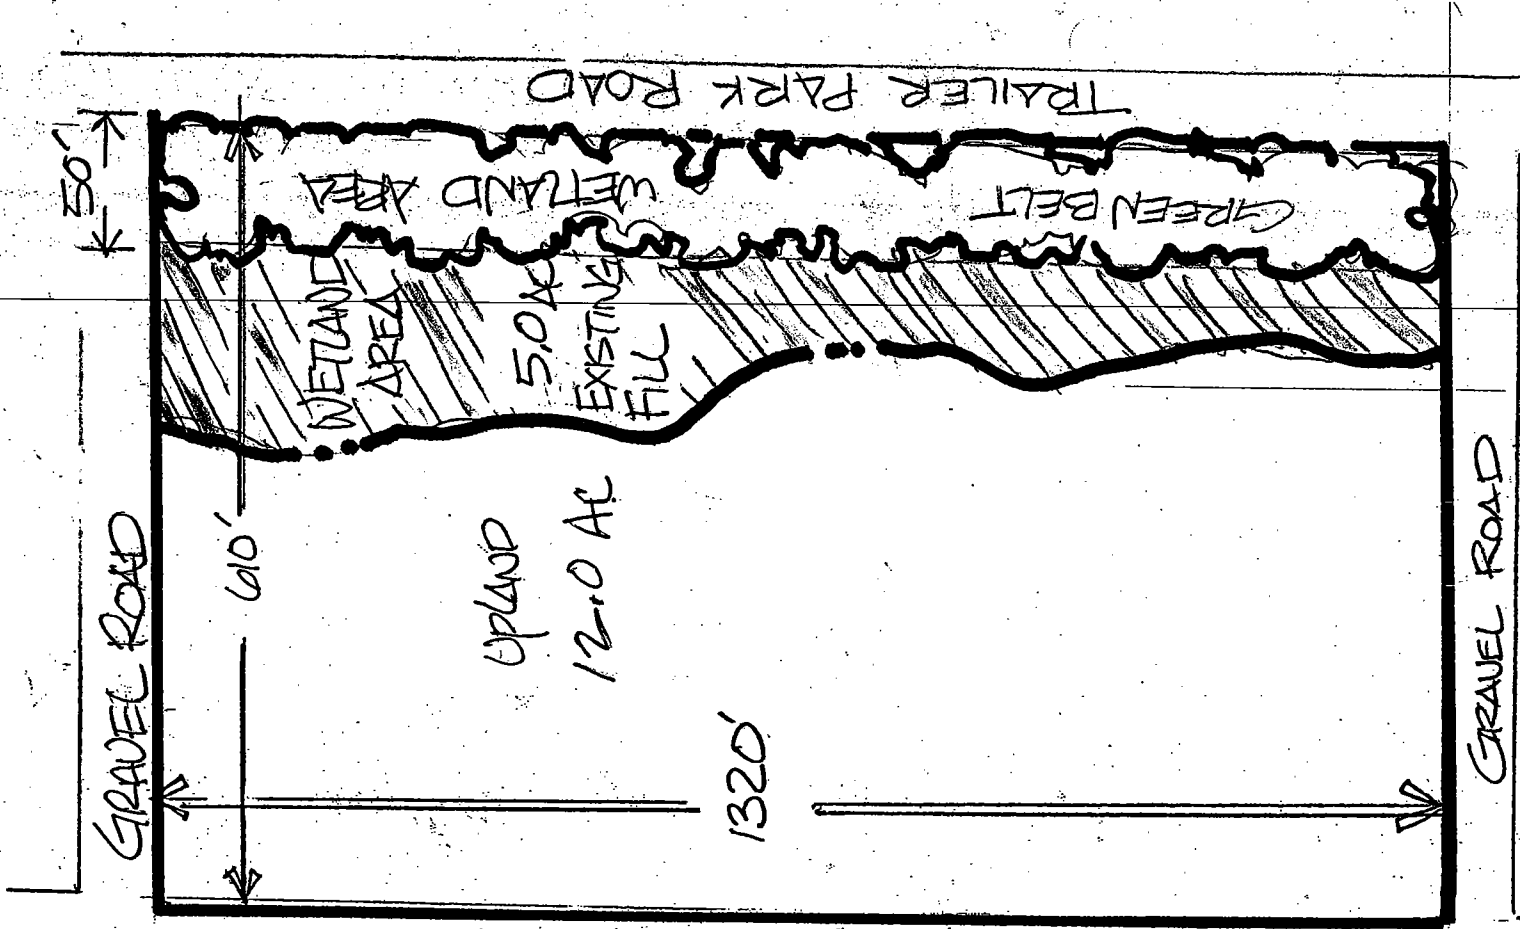 TRAILER PARK ROAD
50'
WETLAND AREA
GREEN BELT
WETLAND
AREA
5.0 AC
EXISTING
FILL
GRAVEL ROAD
610'
UPLAND
12.0 AC
1320'
GRAVEL ROAD